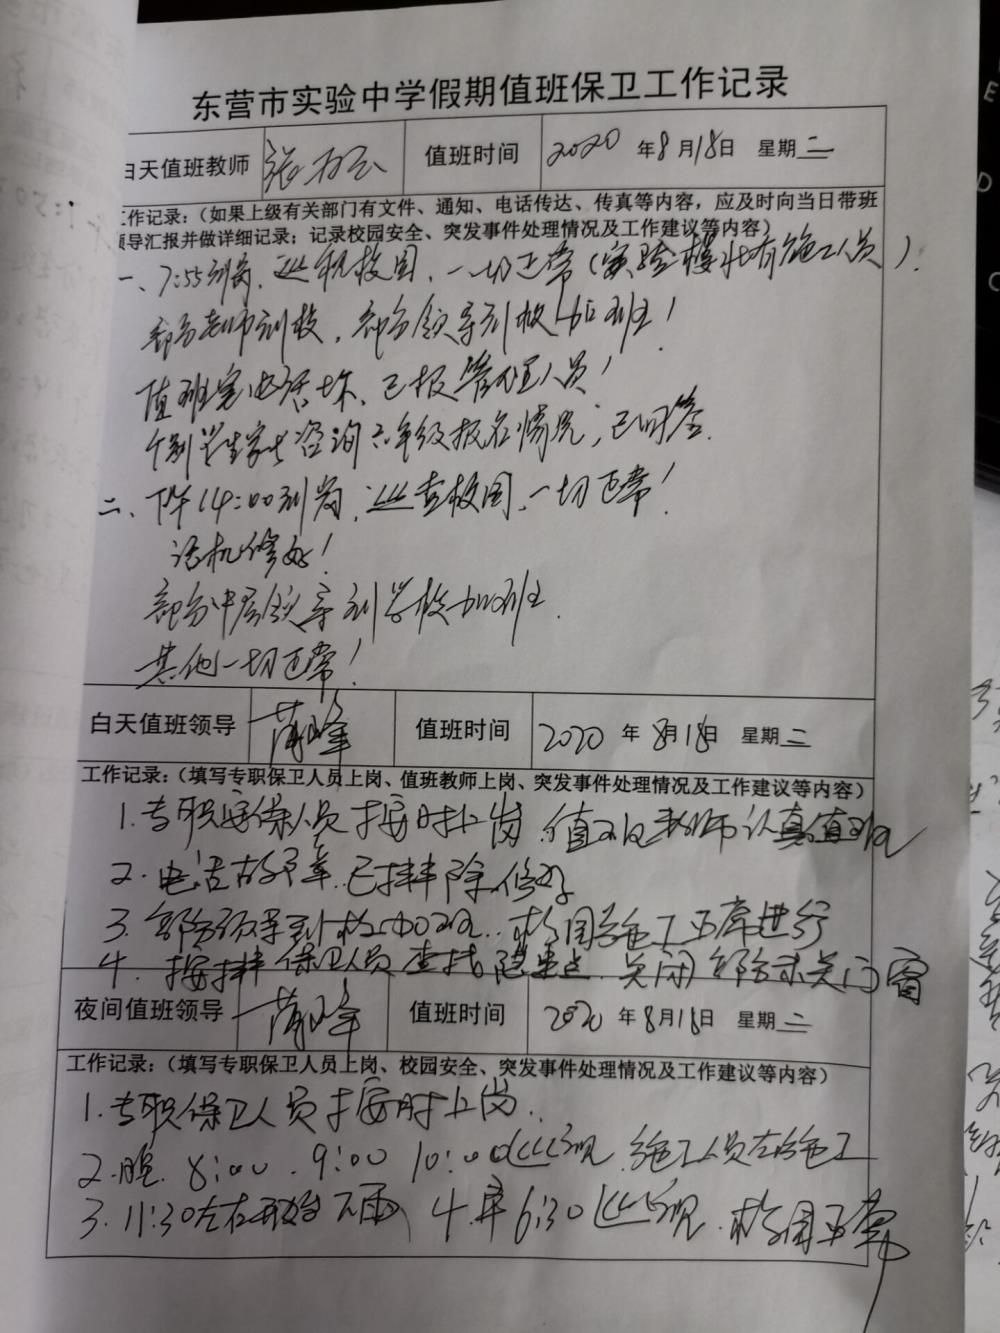 东营市实验中学假期值班保卫工作记录
白天值班教师 张 值班时间 2020 年 8 月 18 日 星期 二
工作记录:(如果上级有关部门有文件、通知、电话传达、传真等内容,应及时向当日带班
领导汇报并做详细记录;记录校园安全、突发事件处理情况及工作建议等内容)
一、7:55到岗,巡视校园,一切正常(实验楼北有施工人员).
部分老师到校,部分领导到校加班!
值班室电话坏,已报管理人员!
个别学生家长咨询六年级报名情况,已回答.
二、下午14:00到岗,巡查校园,一切正常!
话机修好!
部分中层领导到学校加班.
其他一切正常!
白天值班领导 薄峰 值班时间 2020 年 8 月 18 日 星期 二
工作记录:(填写专职保卫人员上岗、值班教师上岗、突发事件处理情况及工作建议等内容)
1.专职安保人员按时上岗.值班教师认真值班
2.电话故障.已排除修好
3.部分领导到校加班..校园施工正常进行
4.安排保卫人员查找隐患点.关闭部分未关门窗
夜间值班领导 薄峰 值班时间 2020 年 8 月 18 日 星期 二
工作记录:(填写专职保卫人员上岗、校园安全、突发事件处理情况及工作建议等内容)
1.专职保卫人员按时上岗.
2.晚 8:00.9:00 10:00巡视.施工人员在施工
3.11:30左右开始下雨 4.早6:30巡视.校园正常